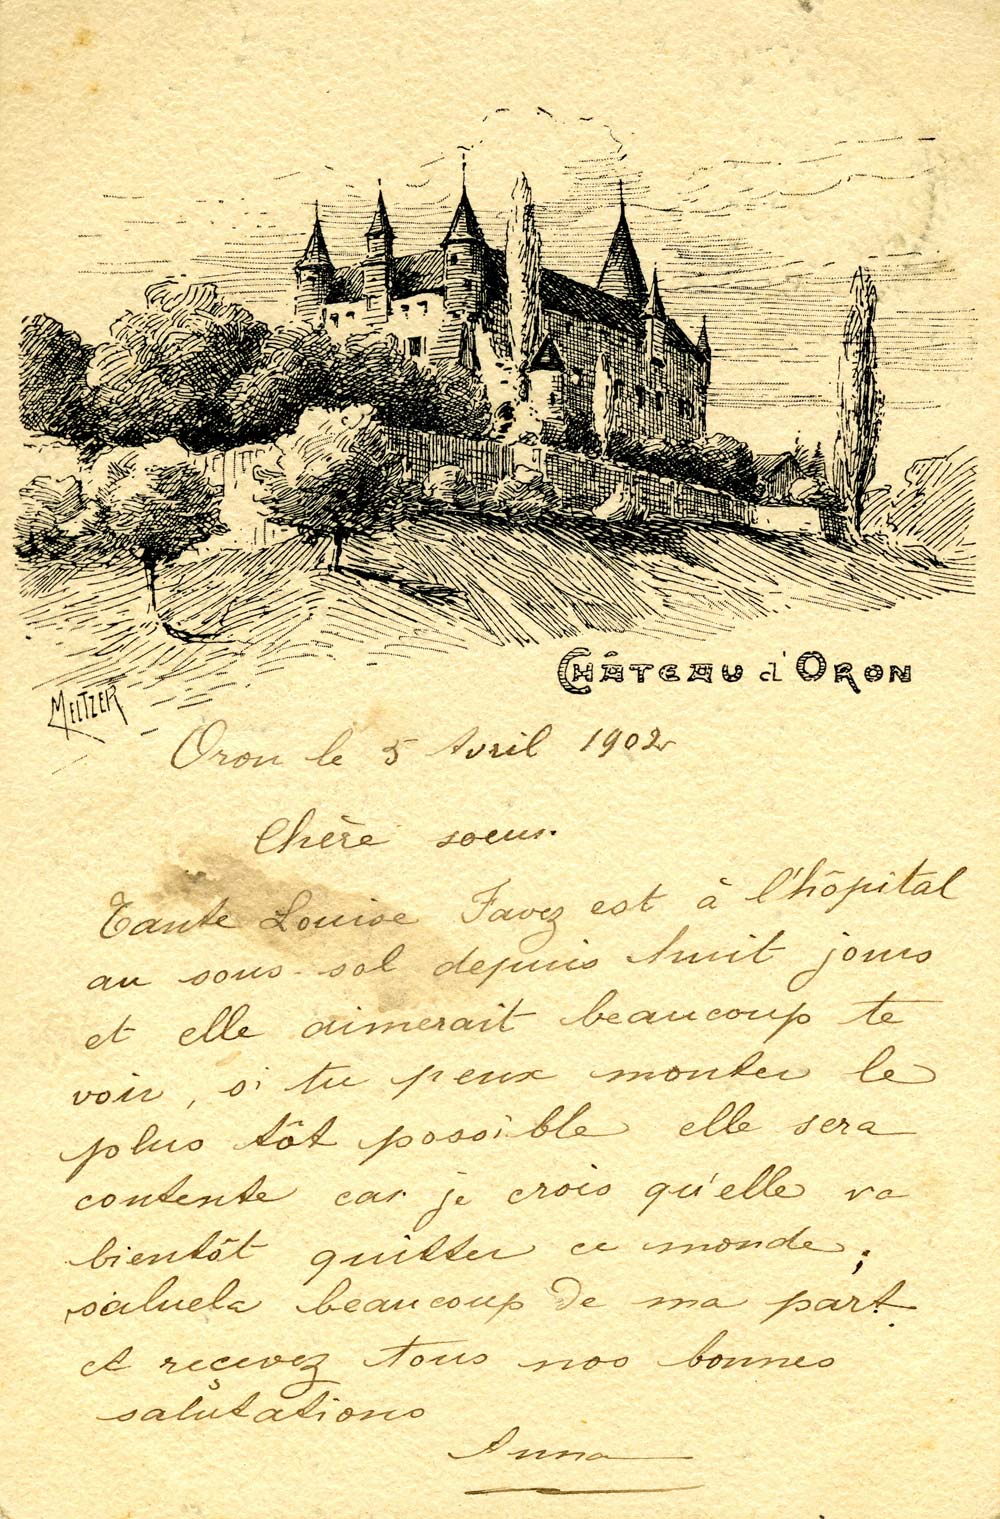 CHÂTEAU d'ORON
MELTZER
Oron le 5 Avril 1902
Chère soeur.
Tante Louise Favez est à l'hôpital
au sous-sol depuis huit jours
et elle aimerait beaucoup te
voir, si tu peux monter le
plus tôt possible elle sera
contente car je crois qu'elle va
bientôt quitter ce monde;
saluela beaucoup de ma part.
et reçevez tous nos bonnes
salutations
Anna